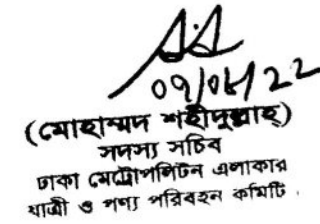 ০৭/০৮/২২
(মোহাম্মদ শহীদুল্লাহ)
সদস্য সচিব
ঢাকা মেট্রোপলিটন এলাকার
যাত্রী ও পণ্য পরিবহন কমিটি